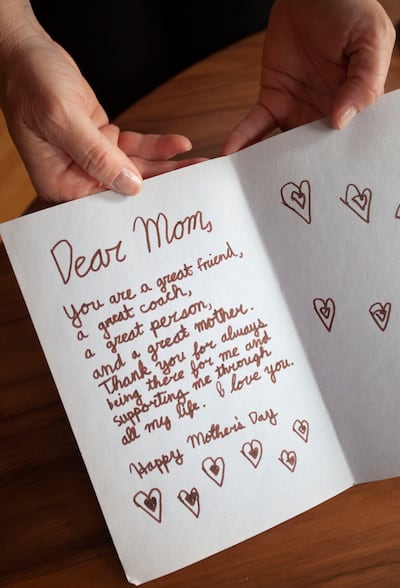 Dear Mom,
You are a great friend,
a great coach,
a great person,
and a great mother.
Thank you for always
being there for me and
supporting me through
all my life. I love you.
Happy Mother's Day